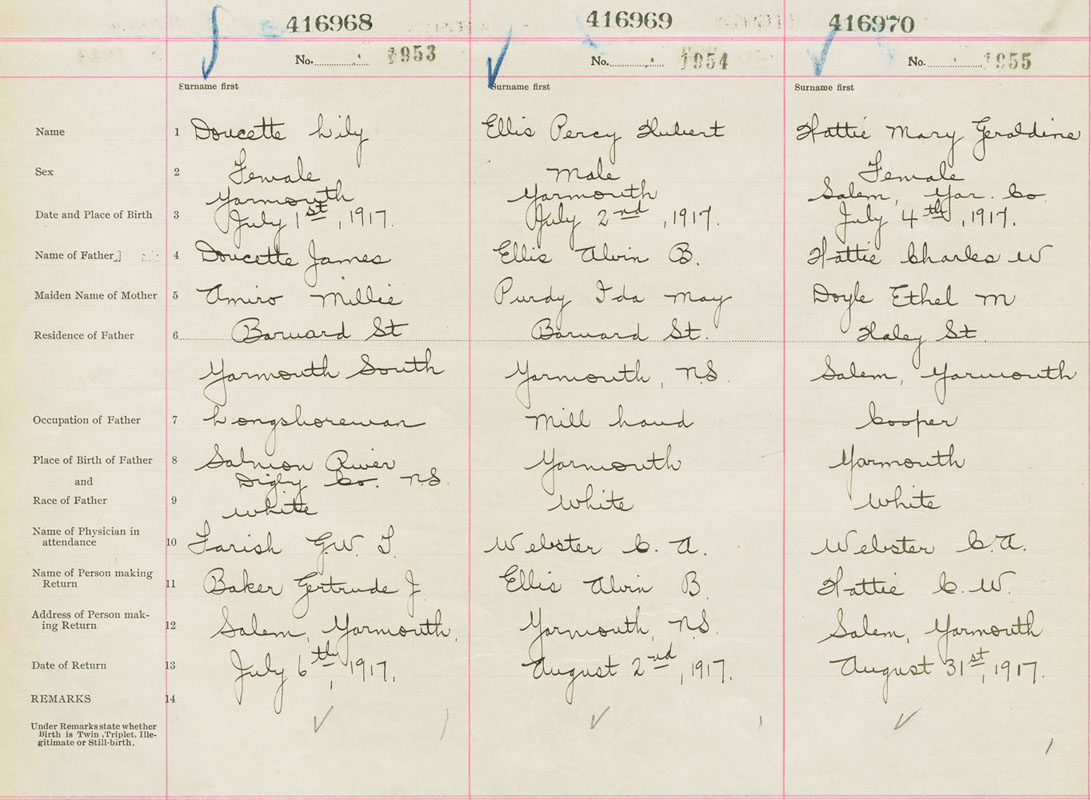 416968 416969 416970
No. 1953 No. 1954 No. 1955
Surname first Surname first Surname first
Name 1 Doucette Lily Ellis Percy Hubert Hattie Mary Geraldine
Sex 2 Female Male Female
Yarmouth Yarmouth Salem, Yar. Co.
Date and Place of Birth 3 July 1st, 1917. July 2nd, 1917. July 4th, 1917.
Name of Father 4 Doucette James Ellis Alvin B. Hattie Charles W
Maiden Name of Mother 5 Amiro Millie Purdy Ida May Doyle Ethel M
Residence of Father 6 Barnard St Barnard St. Haley St.
Yarmouth South Yarmouth, NS. Salem, Yarmouth
Occupation of Father 7 Longshoreman Mill hand Cooper
Place of Birth of Father 8 Salmon River Yarmouth Yarmouth
and Digby Co. NS.
Race of Father 9 White White White
Name of Physician in
attendance 10 Farish G.W. T. Webster C. A. Webster C.A.
Name of Person making
Return 11 Baker Gertrude J. Ellis Alvin B. Hattie C. W.
Address of Person mak-
ing Return 12 Salem, Yarmouth. Yarmouth, N.S. Salem, Yarmouth
Date of Return 13 July 6th, 1917. August 2nd, 1917. August 31st, 1917.
REMARKS 14
Under Remarks state whether
Birth is Twin, Triplet, Ille-
gitimate or Still-birth.